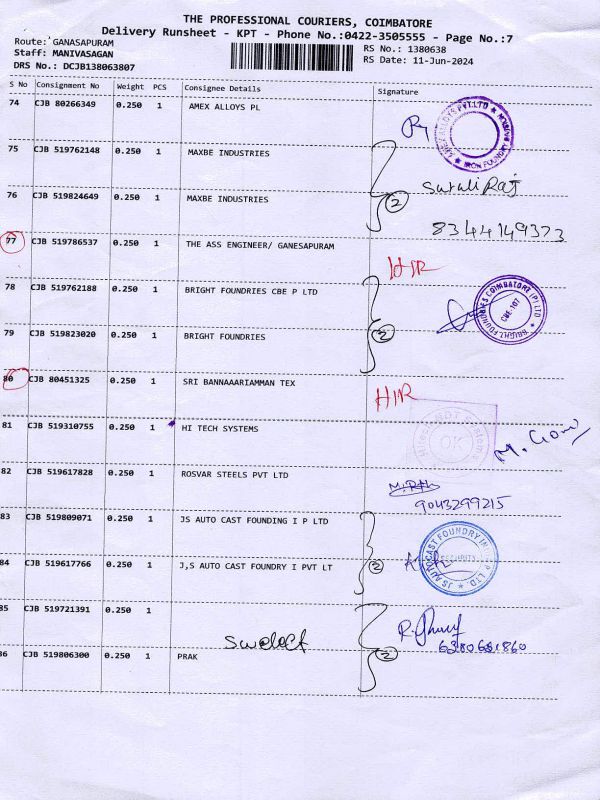 THE PROFESSIONAL COURIERS, COIMBATORE
Delivery Runsheet - KPT - Phone No.:0422-3505555 - Page No.:7
Route: GANASAPURAM
RS No.: 1380638
Staff: MANIVASAGAN
RS Date: 11-Jun-2024
DRS No.: DCJB138063807
S No Consignment No Weight PCS Consignee Details Signature
74 CJB 80266349 0.250 1 AMEX ALLOYS PL
75 CJB 519762148 0.250 1 MAXBE INDUSTRIES
76 CJB 519824649 0.250 1 MAXBE INDUSTRIES 2
8344149373
77 CJB 519786537 0.250 1 THE ASS ENGINEER/ GANESAPURAM
78 CJB 519762188 0.250 1 BRIGHT FOUNDRIES CBE P LTD
BRIGHT FOUNDRIES COIMBATORE (P) LTD
CBE-107
79 CJB 519823020 0.250 1 BRIGHT FOUNDRIES 2
80 CJB 80451325 0.250 1 SRI BANNAAARIAMMAN TEX
81 CJB 519310755 0.250 1 HI TECH SYSTEMS
OK
82 CJB 519617828 0.250 1 ROSVAR STEELS PVT LTD
9043299215
83 CJB 519809071 0.250 1 JS AUTO CAST FOUNDING I P LTD
JS AUTOCAST FOUNDRY IN P. LTD.
84 CJB 519617766 0.250 1 J,S AUTO CAST FOUNDRY I PVT LT 2
85 CJB 519721391 0.250 1
Swelect
86 CJB 519806300 0.250 1 PRAK 2